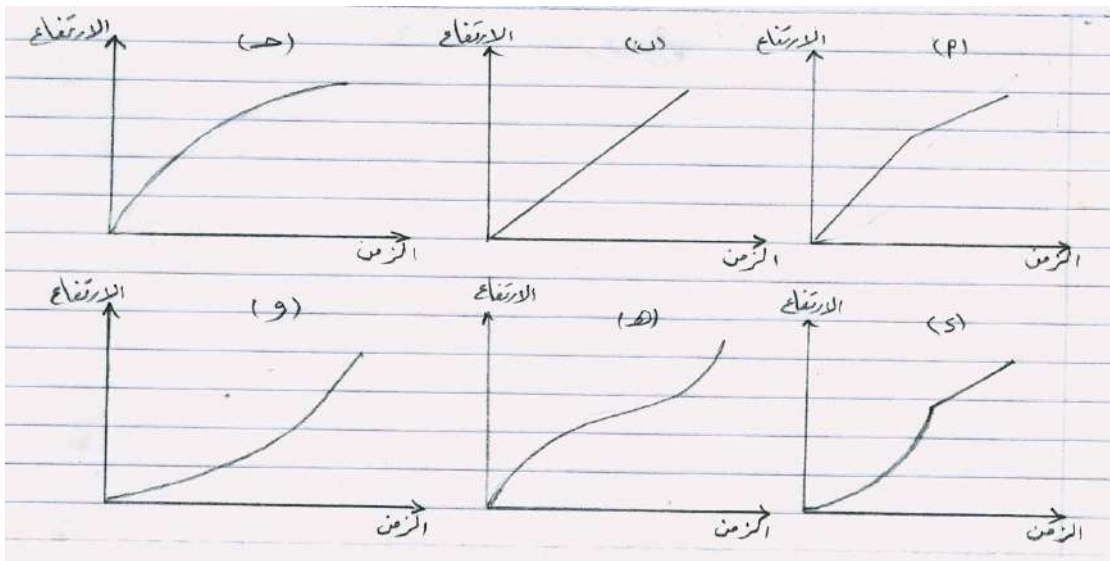 الارتفاع (P) الزمن
الارتفاع (ب) الزمن
الارتفاع (حـ) الزمن
الارتفاع (s) الزمن
الارتفاع (هـ) الزمن
الارتفاع (و) الزمن